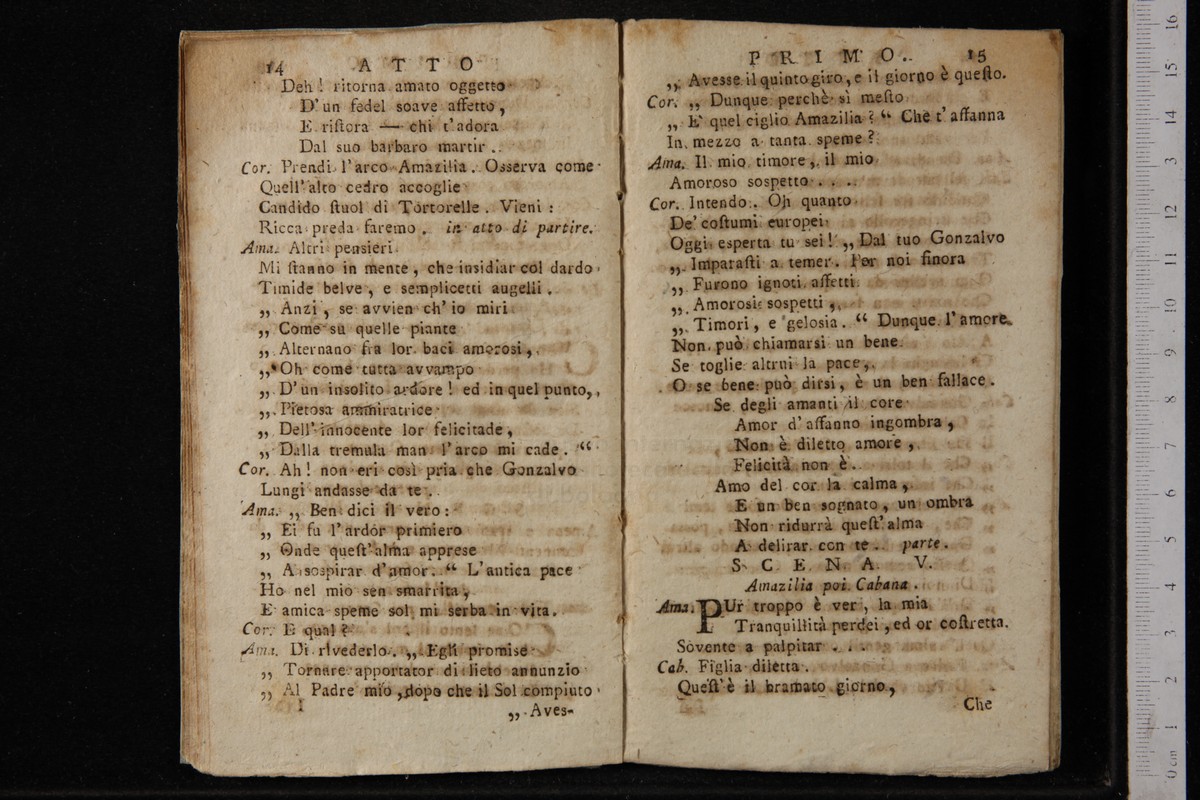 14 A T T O
Deh! ritorna amato oggetto
D' un fedel soave affetto,
E riſtora — chi t' adora
Dal suo barbaro martir.
Cor. Prendi l' arco Amazilia. Osserva come
Quell' alto cedro accoglie
Candido ſtuol di Tortorelle. Vieni:
Ricca preda faremo. in atto di partire.
Ama. Altri pensieri
Mi ſtanno in mente, che insidiar col dardo
Timide belve, e semplicetti augelli.
„ Anzi, se avvien ch' io miri
„ Come su quelle piante
„ Alternano fra lor baci amorosi,
„ Oh come tutta avvampo
„ D' un insolito ardore! ed in quel punto,
„ Pietosa ammiratrice
„ Dell' innocente lor felicitade,
„ Dalla tremula man l' arco mi cade. “
Cor. Ah! non eri così pria che Gonzalvo
Lungi andasse da te.
Ama. „ Ben dici il vero:
„ Ei fu l' ardór primiero
„ Onde queſt' alma apprese
„ A sospirar d' amor. “ L' antica pace
Ho nel mio sen smarrita,
E amica speme sol mi serba in vita.
Cor. E qual?
Ama. Di rivederlo. „ Egli promise
„ Tornare apportator di lieto annunzio
„ Al Padre mio, dopo che il Sol compiuto
„ Aves-
P R I M O. 15
„ Avesse il quinto giro, e il giorno è queſto.
Cor. „ Dunque perchè sì meſto
„ E' quel ciglio Amazilia? “ Che t' affanna
In mezzo a tanta speme?
Ama. Il mio timore, il mio
Amoroso sospetto . . .
Cor. Intendo. Oh quanto
De' coſtumi europei
Oggi esperta tu sei! „ Dal tuo Gonzalvo
„ Imparaſti a temer. Per noi finora
„ Furono ignoti affetti
„ Amorosi sospetti,
„ Timori, e gelosia. “ Dunque l' amore
Non può chiamarsi un bene
Se toglie altrui la pace,
O se bene può dirsi, è un ben fallace.
Se degli amanti il core
Amor d' affanno ingombra,
Non è diletto amore,
Felicità non è.
Amo del cor la calma,
E un ben sognato, un ombra
Non ridurrà queſt' alma
A delirar con te. parte.
S C E N A V.
Amazilia poi Cabana.
Ama. PUr troppo è ver, la mia
Tranquillità perdei, ed or coſtretta
Sovente a palpitar . . .
Cab. Figlia diletta.
Queſt' è il bramato giorno,
Che